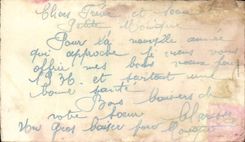 Chers Frère et Sœur
Petite
Pour la nouvelle année
qui approche je vous
offre mes bons vœux pour
1936 et surtout une
bonne santé
Bons baisers de
votre sœur
Un gros baiser pour